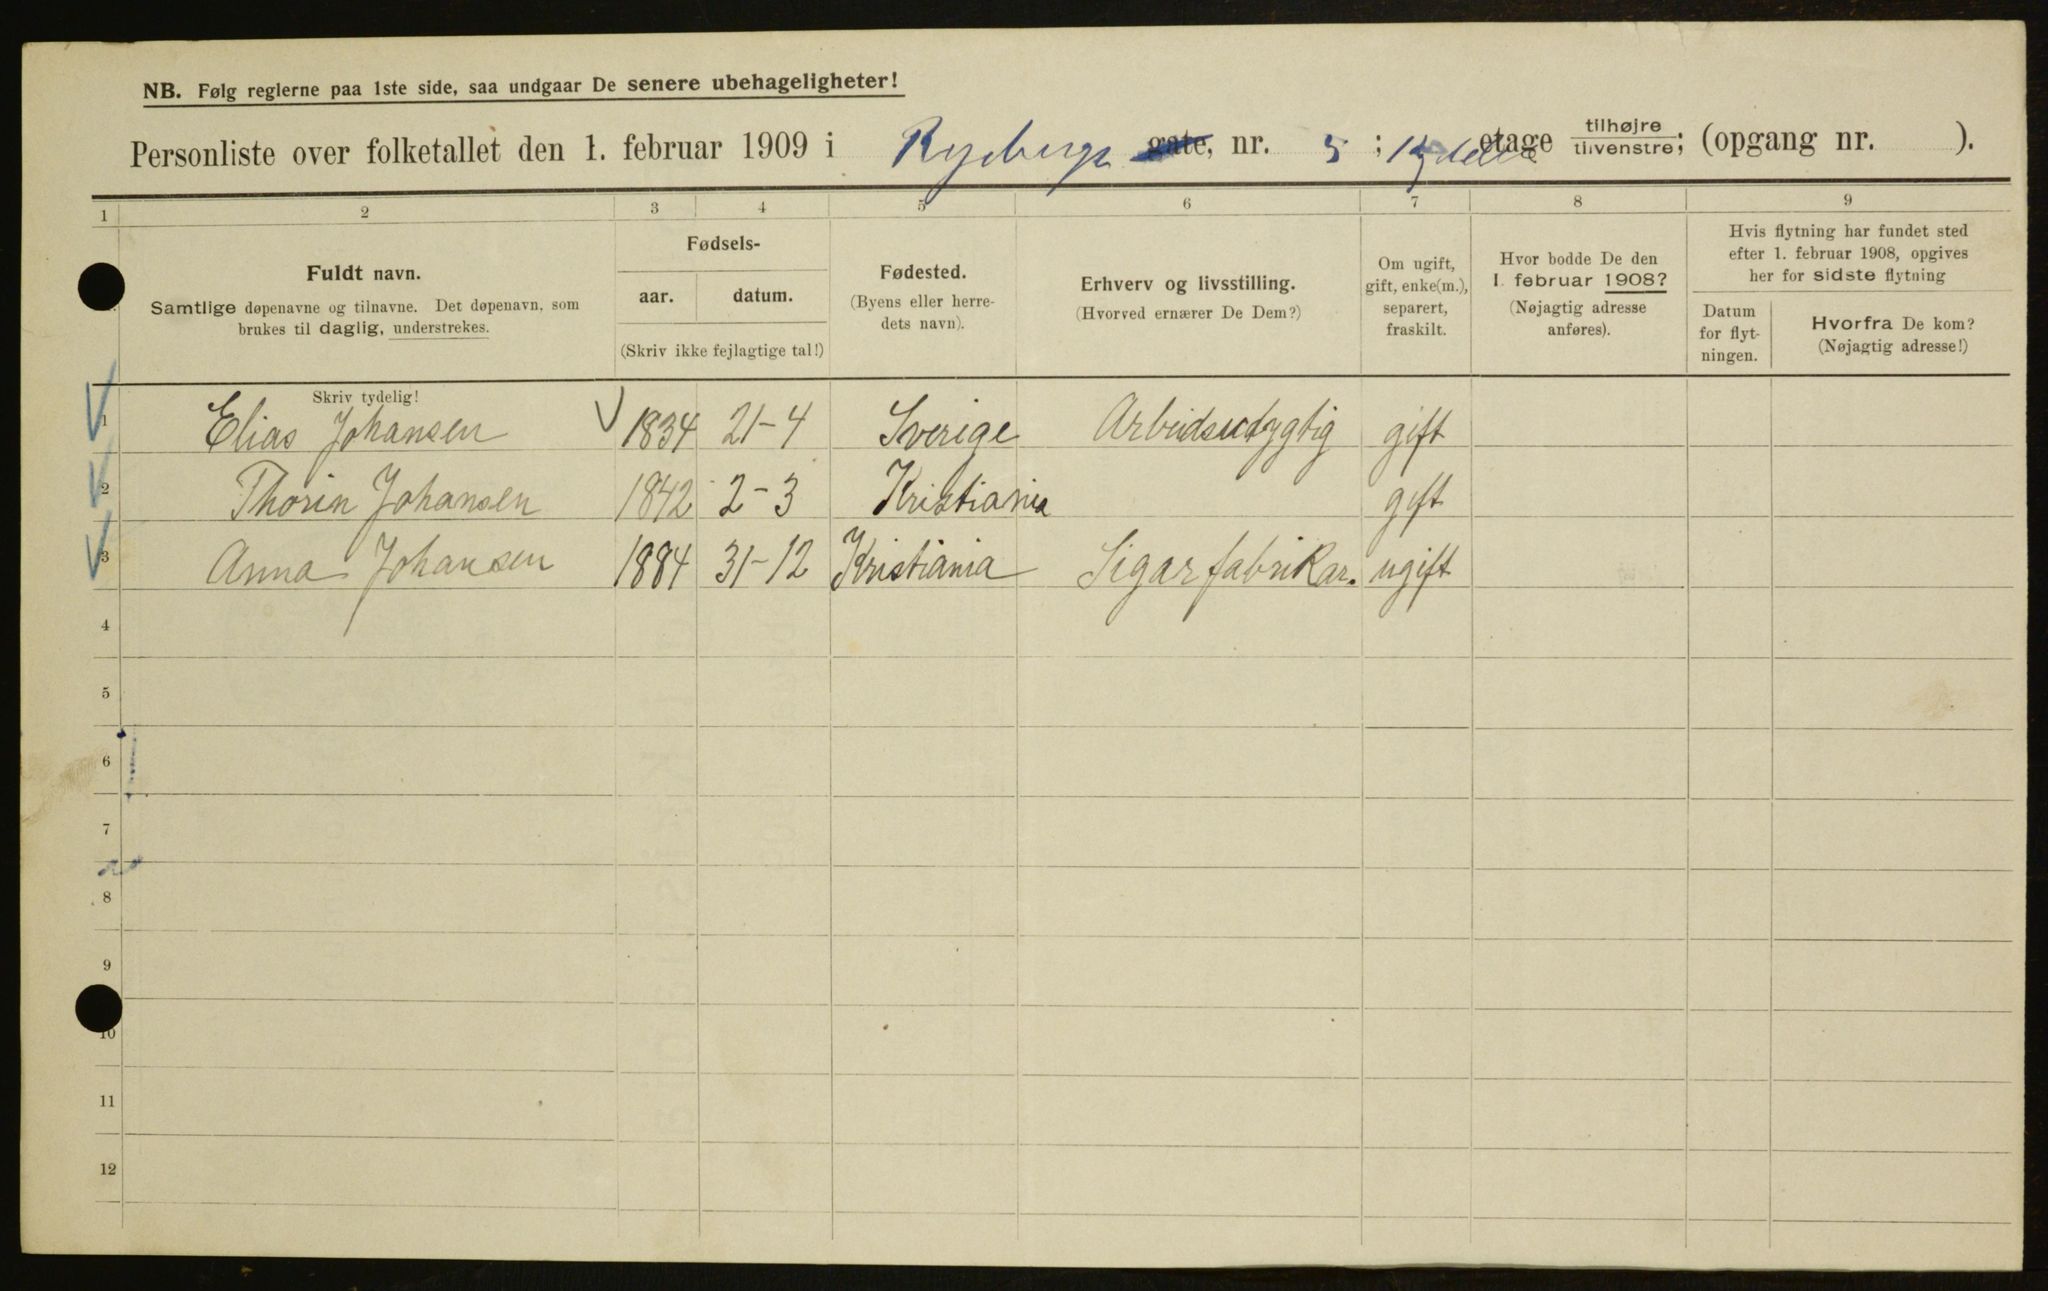 NB. Følg reglerne paa 1ste side, saa undgaar De senere ubehageligheter!
Personliste over folketallet den 1. februar 1909 i Rydbergs gate, nr. 5 ; etage tilhøjre tilvenstre; (opgang nr. ).
1 2 3 4 5 6 7 8 9
Fuldt navn.
Samtlige døpenavne og tilnavne. Det døpenavn, som
brukes til daglig, understrekes.
Fødsels-
aar. datum.
(Skriv ikke fejlagtige tal!)
Fødested.
(Byens eller herre-
dets navn).
Erhverv og livsstilling.
(Hvorved ernærer De Dem?)
Om ugift,
gift, enke(m.),
separert,
fraskilt.
Hvor bodde De den
1. februar 1908?
(Nøjagtig adresse
anføres).
Hvis flytning har fundet sted
efter 1. februar 1908, opgives
her for sidste flytning
Datum
for flyt-
ningen.
Hvorfra De kom?
(Nøjagtig adresse!)
Skriv tydelig!
1 Elias Johansen 1834 21-4 Sverige Arbeidsudygtig gift
2 Thorin Johansen 1842 2-3 Kristiania gift
3 Anna Johansen 1884 31-12 Kristiania Sigarfabrikar. ugift
4
5
6
7
8
9
10
11
12